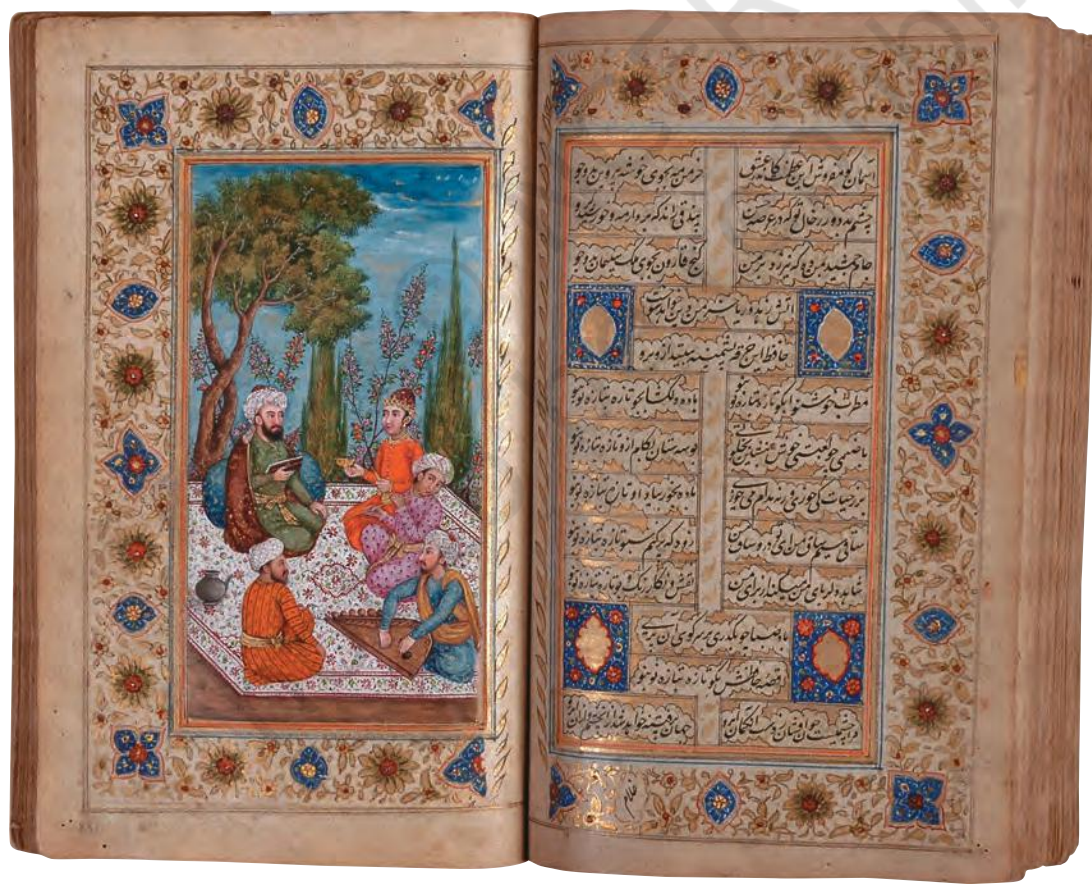 آسمان گو مفروش این عظمت کاندر عشق خرمن مه بجوی خوشه پروین بدو جو
چشم بد دور ز خال تو که در عرصه حسن بیدقی راند که برد از مه و خورشید گرو
جام جمشید بمن ده که نیرزد بر من گنج قارون بجوی ملک سلیمان بدو جو
آتش زهد و ریا خرمن دین خواهد سوخت
حافظ این خرقه پشمینه بینداز و برو
مطرب خوشنوا بگو تازه بتازه نو بنو باده دلگشا بجو تازه بتازه نو بنو
با صنمی چو لعبتی خوش بنشین بخلوتی بوسه ستان بکام ازو تازه بتازه نو بنو
بر ز حیات کی خوری گر نه مدام می خوری باده بخور بیاد او تازه بتازه نو بنو
ساقی سیم ساق من زود که پر کنم سبو تازه بتازه نو بنو
شاهد دلربای من میکند از برای من نقش و نگار و رنگ و بو تازه بتازه نو بنو
باد صبا چو بگذری بر سر کوی آن پری
قصه حافظش بگو تازه بتازه نو بنو
مرا چشمیست خون افشان ز دست آن کمان ابرو جهان پر فتنه خواهد شد از آن چشم و از آن ابرو